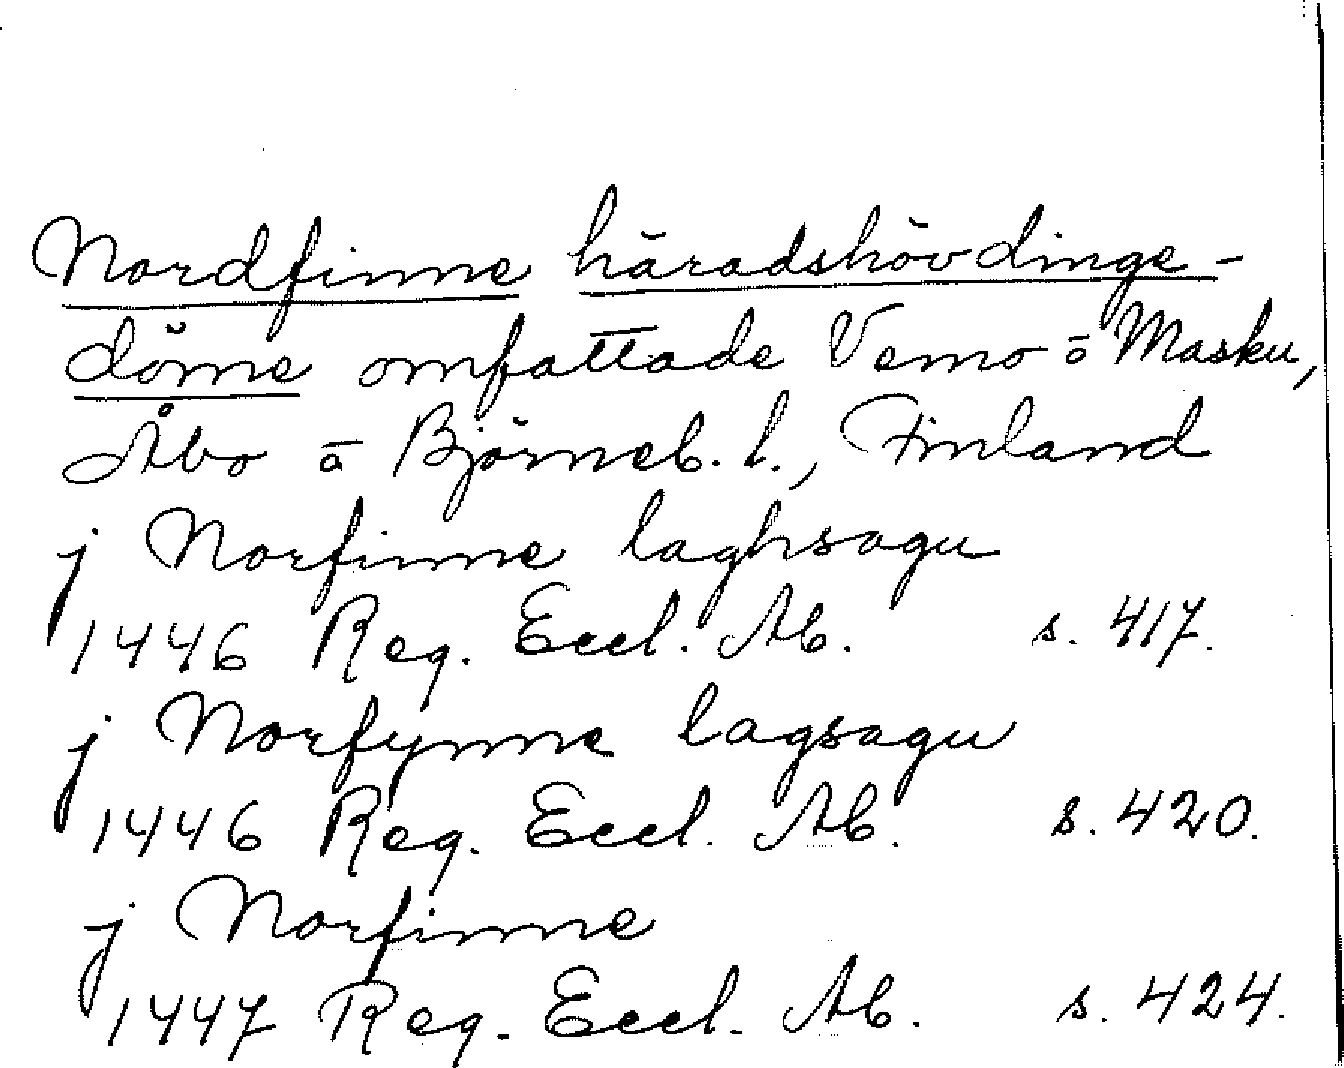 Nordfinne häradshövdinge-
döme omfattade Vemo o Masku,
Åbo o Björneb. l., Finland
j Norfinne laghsagu
1446 Reg. Eccl. Ab. s. 417.
j Norfynne lagsagu
1446 Reg. Eccl. Ab. s. 420.
j Norfinne
1447 Reg. Eccl. Ab. s. 424.